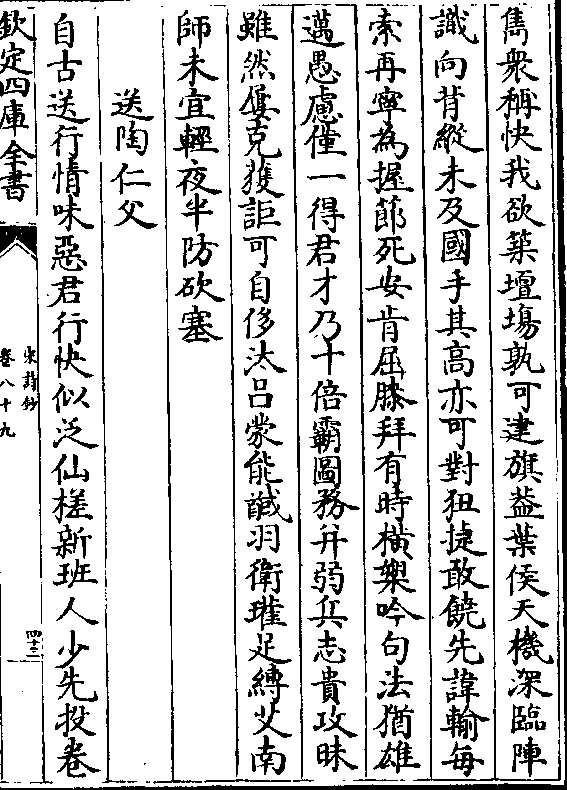 雋衆稱快我欲築壇場孰可建旗葢葉侯天機深臨陣
識向背縱未及國手其高亦可對狃捷敢饒先諱輸每
索再寧為握節死安肯屈膝拜有時横槊吟句法猶雄
邁愚慮僅一得君才乃十倍霸圖務并弱兵志貴攻昧
雖然屢克獲詎可自侈汰吕蒙能馘羽衛瓘足縛艾南
師未宜輕夜半防砍塞
送陶仁父
自古送行情味惡君行快似泛仙槎新班人少先投卷
欽定四庫全書
宋詩鈔
卷八十九
四三